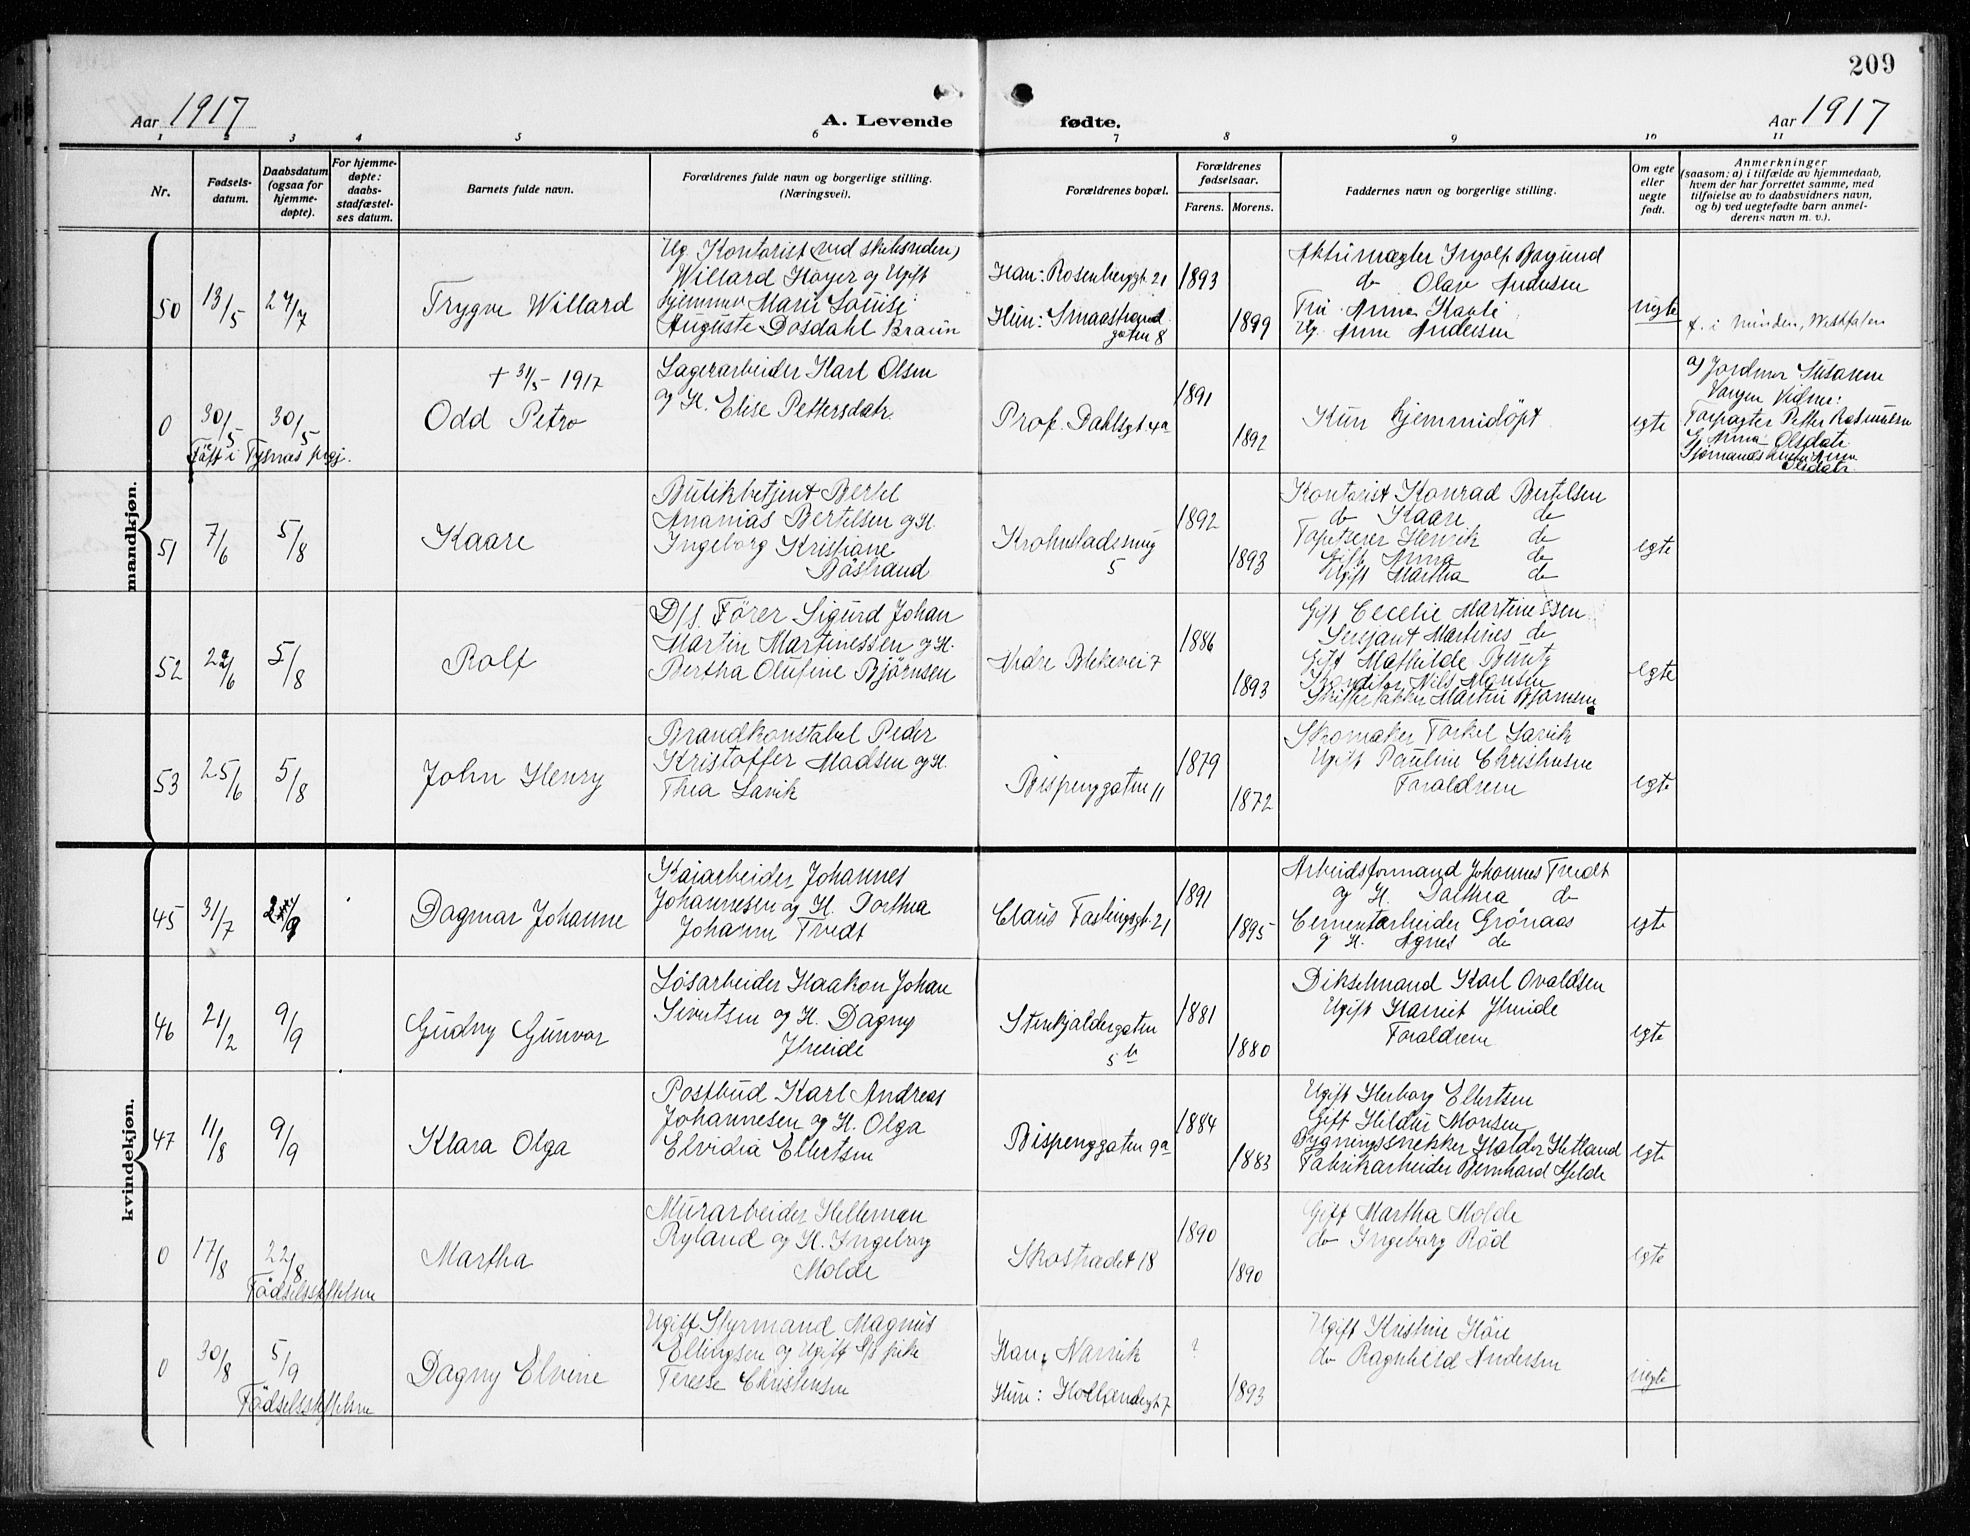 209
Aar 1917
A. Levende fødte.
Aar 1917
1 2 3 4 5 6 7 8 9 10 11
Nr.
Fødsels-
datum.
Daabsdatum
(ogsaa for
hjemme-
døpte).
For hjemme-
døpte:
daabs-
stadfæstel-
ses datum.
Barnets fulde navn.
Forældrenes fulde navn og borgerlige stilling.
(Næringsvei).
Forældrenes bopæl.
Forældrenes
fødselsaar.
Farens. Morens.
Faddernes navn og borgerlige stilling.
Om egte
eller
uegte
født.
Anmerkninger
(saasom: a) i tilfælde av hjemmedaab,
hvem der har forrettet samme, med
tilføielse av to daabsvidners navn,
og b) ved uegtefødte barn anmel-
derens navn m. v.).
mandkjøn.
50
13/5
Trygve Willard
Ug. Kontorist
Willard Høyer og Ugift
Hjemmev. Marie Louise
Auguste Dosdahl Braun
Han: Rosenberggt. 21
Hun: Smaastrand
gaten 8
1893
1899
Ingolf
do Olav Andersen
Anna
Ug. Anna Andersen
uegte
f. i Minden, Westfalen
0
30/5
30/5
Født i Tysnes prgj.
+ 31/5 - 1917
Odd Petro
Lagerarbeider Karl Olsen
og H. Elise Pettersdatr.
Prof. Dahlsgt 4a
1891
1892
Kun hjemmedøpt
egte
a) Jordmor Susanne
Vidner:
Petter Rasmussen
Anna Olsdatr.
51
7/6
5/8
Kaare
Butikbetjent Bertel
Ananias Bertelsen og H.
Ingeborg Kristiane
Böstrand
5
1892
1893
Kontorist Konrad Bertelsen
do Kaare do
Tapetserer Henrik do
Gift Anna do
Ugift Martha do
egte
52
5/8
Rolf
D/s. Fører Sigurd Johan
Martin Martinessen og H.
Bertha Olufine Bjørnsen
Nedre Blekevei 7
1886
1893
Gift Cecelie Martinessen
Sersjant Martines do
Gift Mathilde Bentz
Konditor Nils Monsen
Martin Bjørnsen
egte
53
25/6
5/8
John Henry
Brandkonstabel Peder
Kristoffer Madsen og H.
Thea Lavik
Bispenggaten 11
1879
1872
Skomaker Torkel Lavik
Ugift Pauline Christensen
Forældrene
egte
kvindekjøn.
45
31/7
Dagmar Johanne
Kaiarbeider Johannes
Johannesen og H. Dorthea
Johanne Tvedt
Claus Fastingsgt. 21
1891
1895
Arbeidsformand Johannes Tvedt
og H. Dorthea do
Cementarbeider Grönaas
og H. Agnes do
egte
46
21/2
9/9
Gudny Gunvor
Løsarbeider Haakon Johan
Sivertsen og H. Dagny
Steinkjeldergaten
5b
1881
1880
Dikselmand Karl Ovaldsen
Ugift Harriet
Forældrene
egte
47
11/8
9/9
Klara Olga
Postbud Karl Andreas
Johannesen og H. Olga
Elvidia Ellertsen
Bispenggaten 9a
1884
1883
Ugift Herborg Ellertsen
Gift Hildur Monsen
Bygningssnekker Halder Hetland
Fabrikarbeider Bernhard Hjelde
egte
0
17/8
22/8
Fødselsstiftelsen
Martha
Murarbeider Helleman
Ryland og H. Ingeborg
Molde
Skostradet 18
1890
1890
Gift Martha Molde
do Ingeborg Röd
egte
0
30/8
5/9
Fødselsstiftelsen
Dagny Elvine
Ugift Styrmand Magnus
Ellingsen og Ugift
Terese Christensen
Han: Narvik
Hun: Hollendergt 7
?
1893
Ugift Kristine
do Ragnhild Andersen
uegte